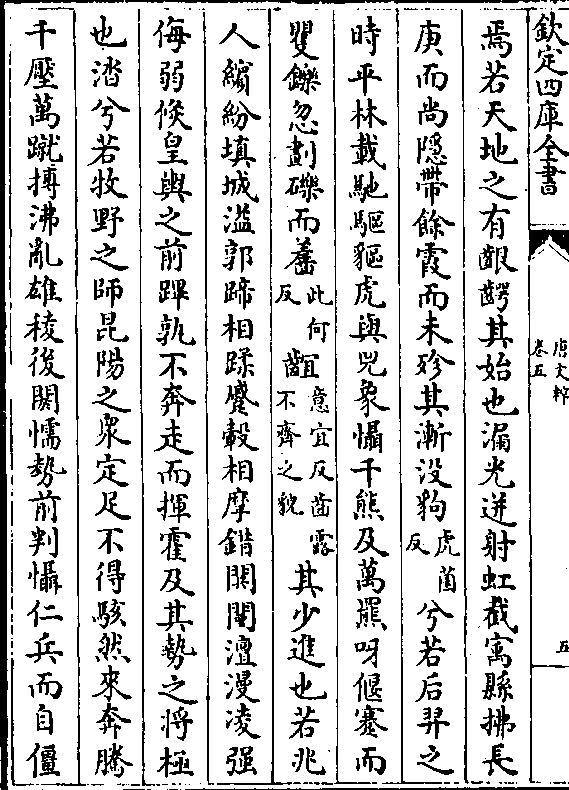 欽定四庫全書
唐文粹
卷五
五
焉若天地之有齦齶其始也漏光迸射虹截寓縣拂長
庚而尚隱帶餘霞而未殄其漸没狥虎菌反兮若后羿之
時平林載馳驅貙虎與兕象懾千熊及萬羆呀偃蹇而
矍鑠忽劃礫而𪗨此何反䶥意宜反齒露不齊之貌其少進也若兆
人繽紛填城溢郭蹄相蹂蹙轂相摩錯閧闐澶漫凌强
侮弱倏皇輿之前蹕孰不奔走而揮霍及其勢之將極
也濌兮若牧野之師昆陽之衆定足不得駭然來奔騰
千壓萬蹴摶沸亂雄稜後閼懦勢前判懾仁兵而自僵